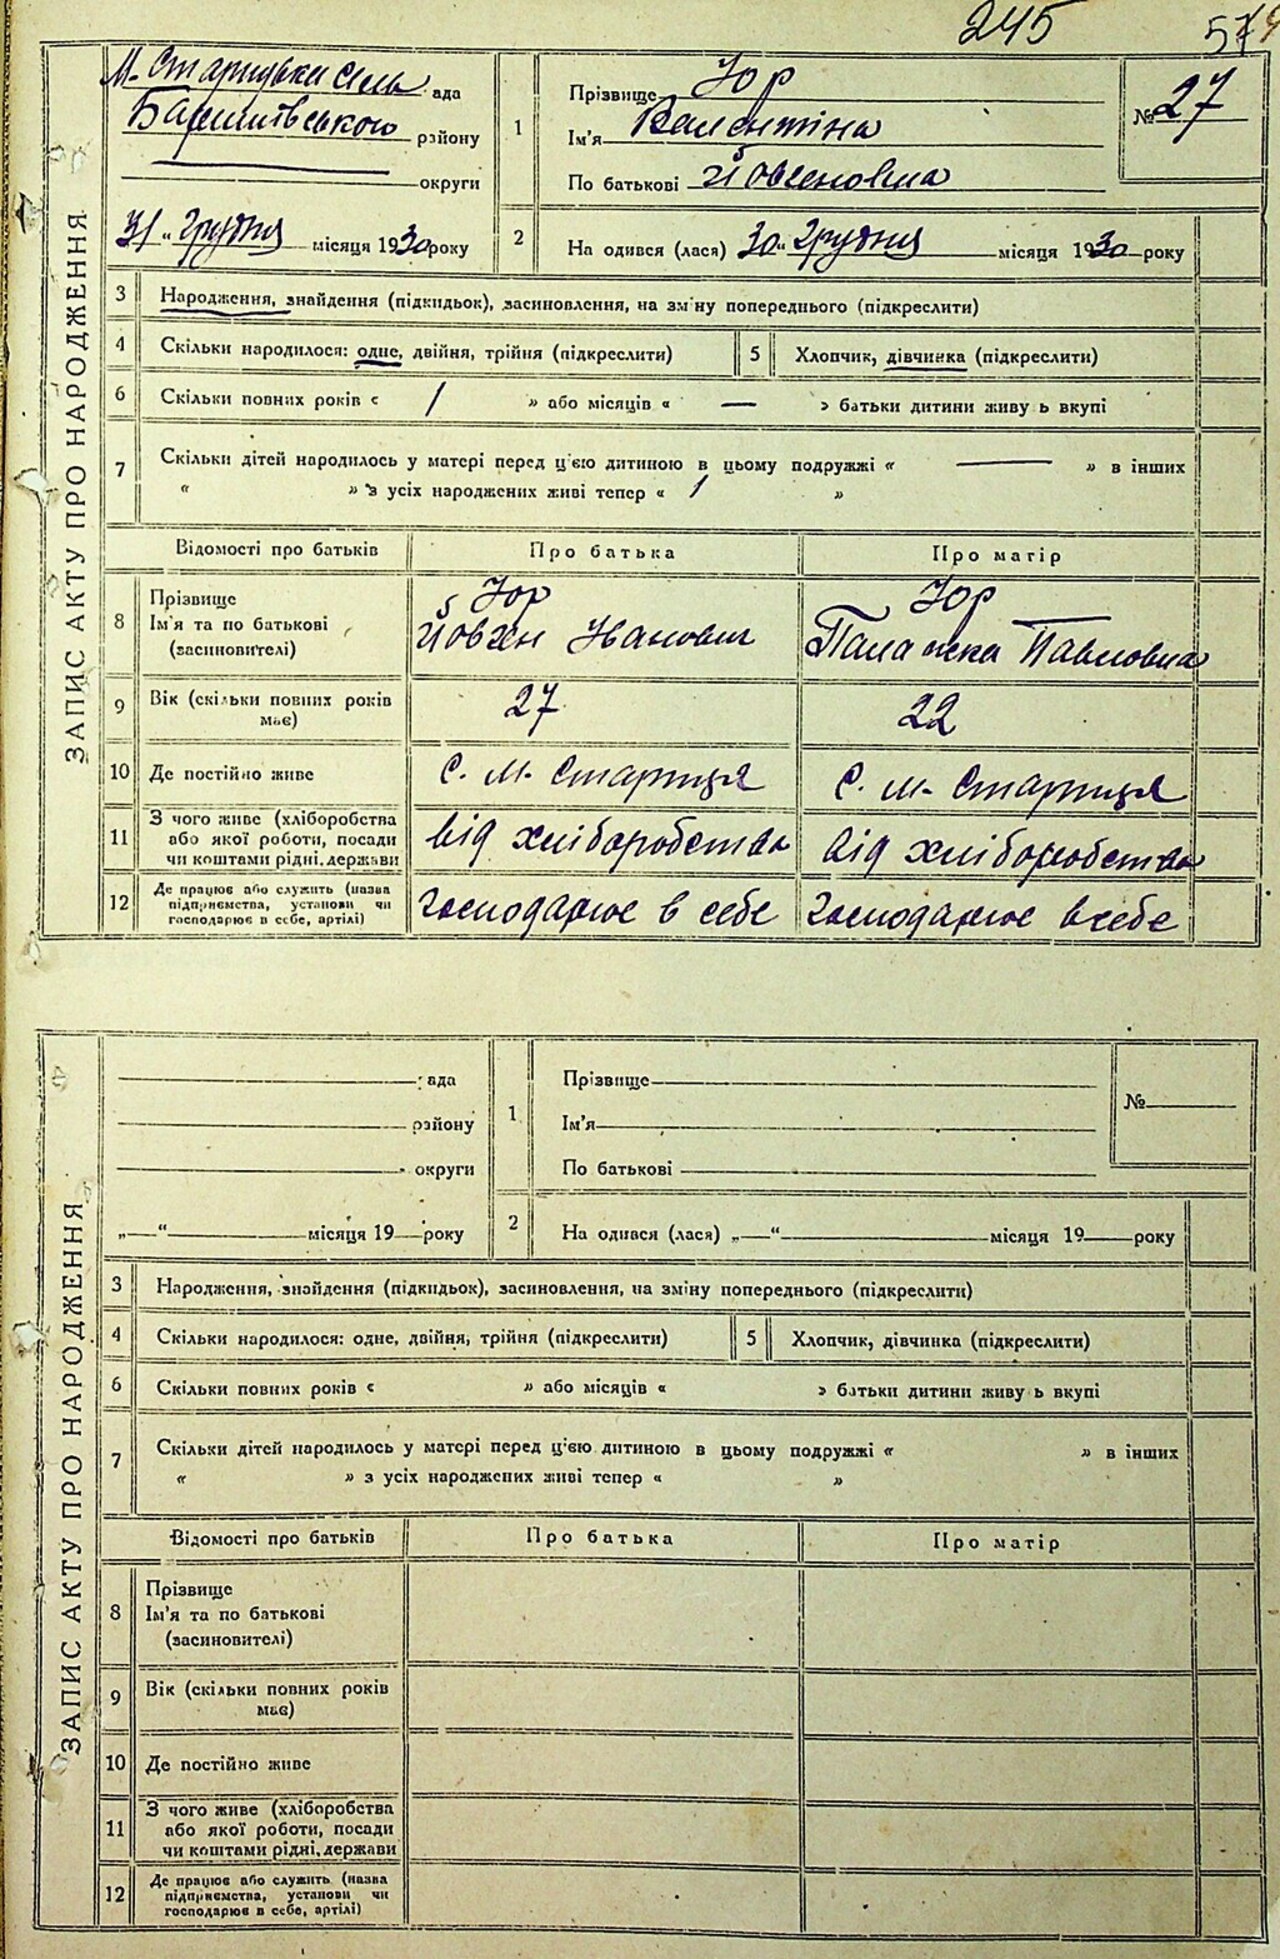 245
ЗАПИС АКТУ ПРО НАРОДЖЕННЯ
М-Старицька сіль ада
Баришівського району
округи
31 „ грудня місяця 1930 року
1
Прізвище Юр
Ім'я Валентіна
По батькові Йовхеновна
№ 27
2
На одився (лася) 30 „ грудня місяця 1930 року
3 Народження, знайдення (підкидьок), засиновлення, на зміну попереднього (підкреслити)
4 Скільки народилося: одне, двійня, трійня (підкреслити)
5 Хлопчик, дівчинка (підкреслити)
6 Скільки повних років « 1 » або місяців « — » батьки дитини живу ь вкупі
7 Скільки дітей народилось у матері перед ц'єю дитиною в цьому подружжі « — » в інших
« » з усіх народжених живі тепер « 1 »
Відомості про батьків Про батька Про матір
8 Прізвище Ім'я та по батькові (засиновителі)
Юр Йовхен Іванович
Юр Палажка Павловна
9 Вік (скільки повних років має) 27 22
10 Де постійно живе С. М. Стариця С. М. Стариця
11 З чого живе (хліборобства або якої роботи, посади чи коштами рідні, держави
від хліборобства від хліборобства
12 Де працює або служить (назва підприємства, установи чи господарює в себе, артілі)
господарює в себе господарює в себе
ЗАПИС АКТУ ПРО НАРОДЖЕННЯ
ада
району
округи
„ “ місяця 19 року
1
Прізвище
Ім'я
По батькові
№
2
На одився (лася) „ “ місяця 19 року
3 Народження, знайдення (підкидьок), засиновлення, на зміну попереднього (підкреслити)
4 Скільки народилося: одне, двійня, трійня (підкреслити)
5 Хлопчик, дівчинка (підкреслити)
6 Скільки повних років « » або місяців « » батьки дитини живу ь вкупі
7 Скільки дітей народилось у матері перед ц'єю дитиною в цьому подружжі « » в інших
« » з усіх народжених живі тепер « »
Відомості про батьків Про батька Про матір
8 Прізвище
Ім'я та по батькові
(засиновителі)
9 Вік (скільки повних років
має)
10 Де постійно живе
11 З чого живе (хліборобства
або якої роботи, посади
чи коштами рідні, держави
12 Де працює або служить (назва
підприємства, установи чи
господарює в себе, артілі)